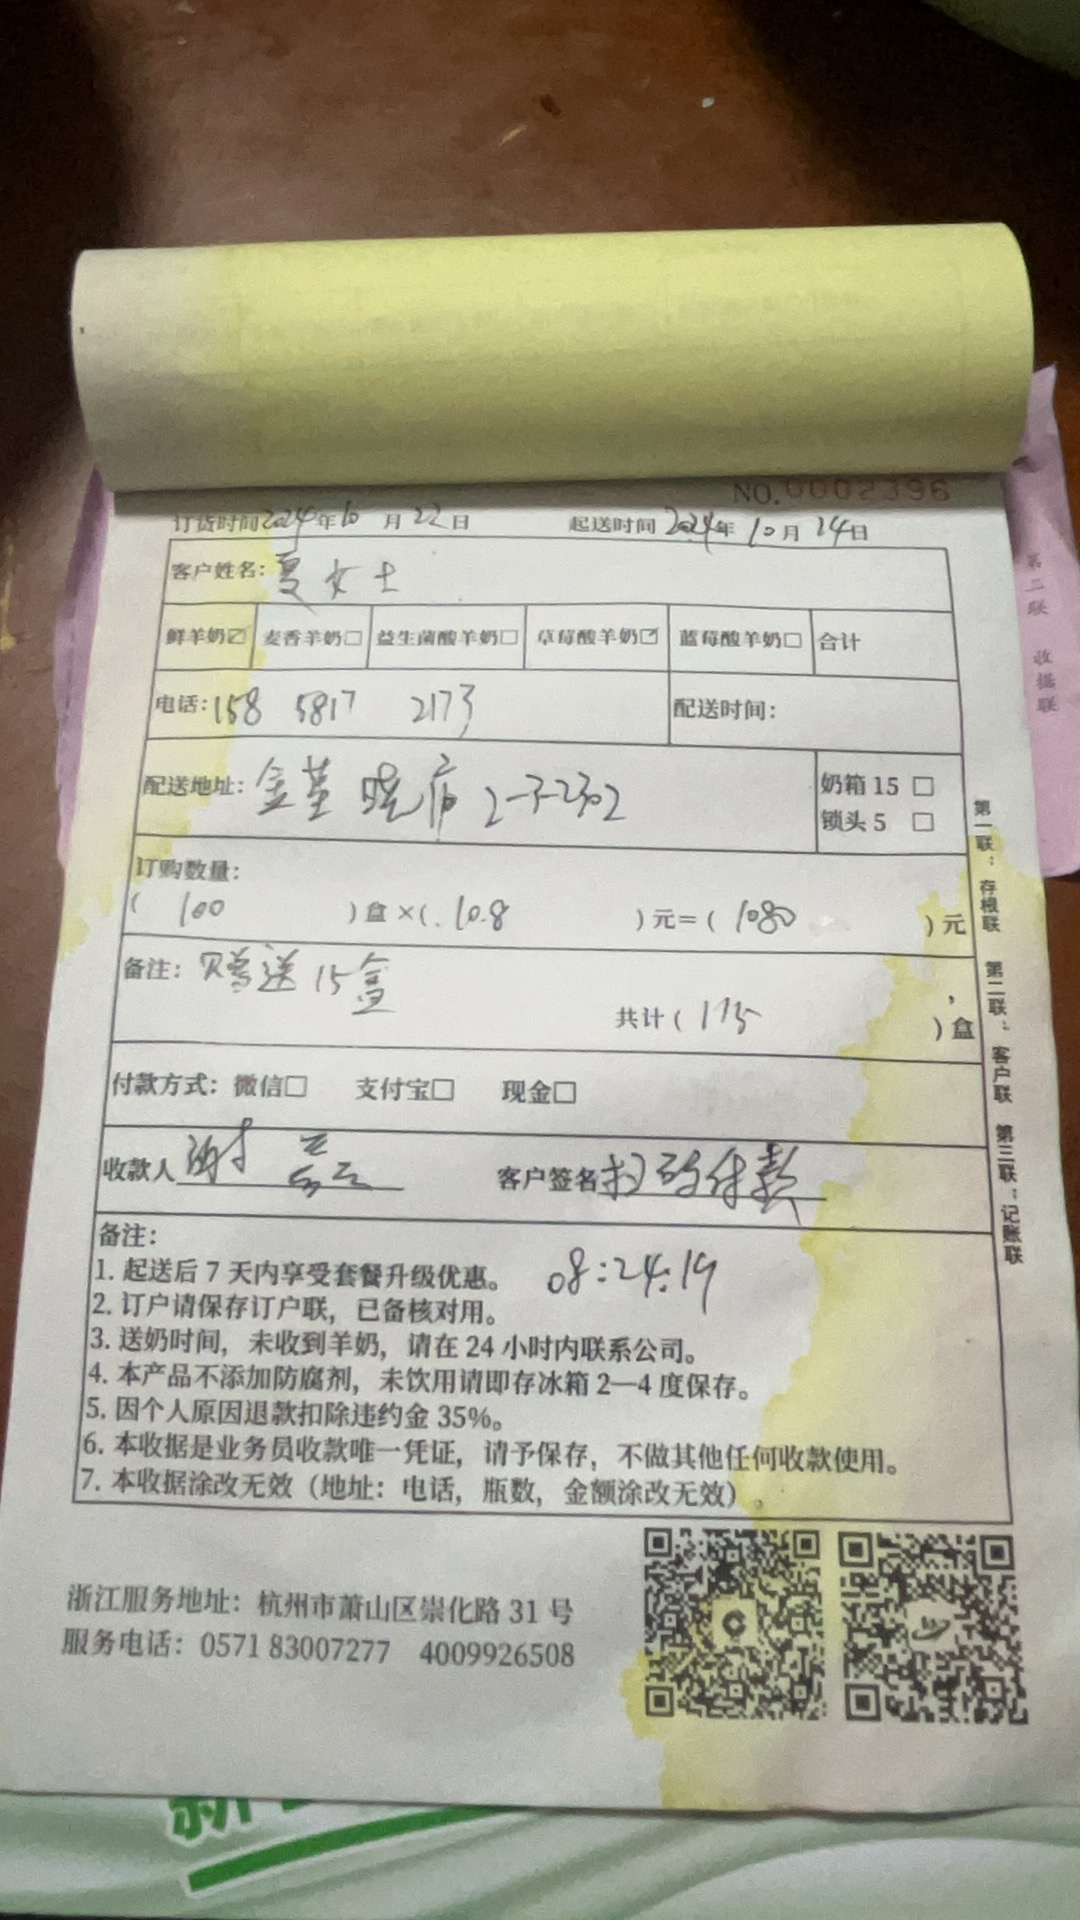 NO.0002396
订货时间2024年10月22日 起送时间2024年10月24日
客户姓名:夏女士
鲜羊奶☑ 麦香羊奶□ 益生菌酸羊奶□ 草莓酸羊奶☑ 蓝莓酸羊奶□ 合计
电话:158 5817 2173 配送时间:
配送地址: 金基晓庐 2-3-2302 奶箱 15 □
锁头 5 □
订购数量:
( 100 )盒×( 10.8 )元=( 1080 )元
备注: 赠送15盒
共计( 115 )盒
付款方式: 微信□ 支付宝□ 现金□
收款人 谢 客户签名 扫码付款
备注:
1. 起送后 7 天内享受套餐升级优惠。 08:24:19
2. 订户请保存订户联，已备核对用。
3. 送奶时间，未收到羊奶，请在 24 小时内联系公司。
4. 本产品不添加防腐剂，未饮用请即存冰箱 2—4 度保存。
5. 因个人原因退款扣除违约金 35%。
6. 本收据是业务员收款唯一凭证，请予保存，不做其他任何收款使用。
7. 本收据涂改无效（地址: 电话, 瓶数, 金额涂改无效）。
第一联: 存根联 第二联: 客户联 第三联: 记账联
浙江服务地址: 杭州市萧山区崇化路 31 号
服务电话: 0571 83007277 4009926508
第二联 收据联